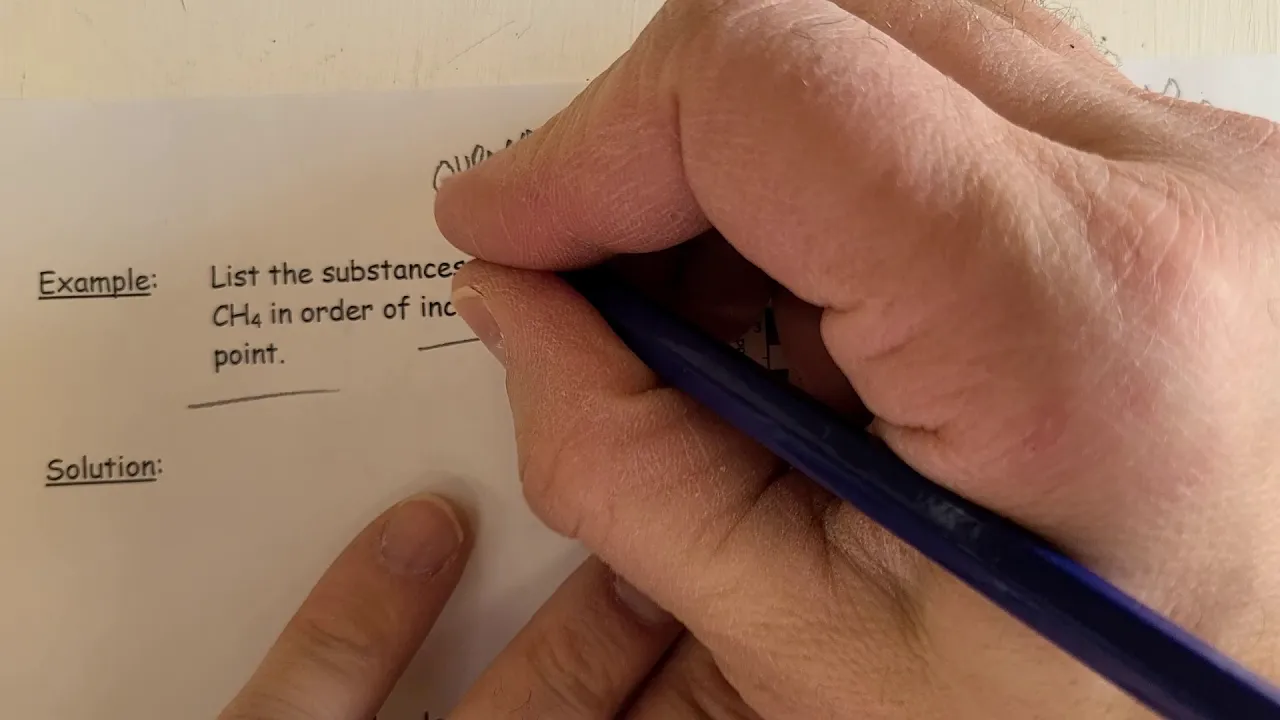 Example: List the substances
CH₄ in order of inc
point.
Solution: